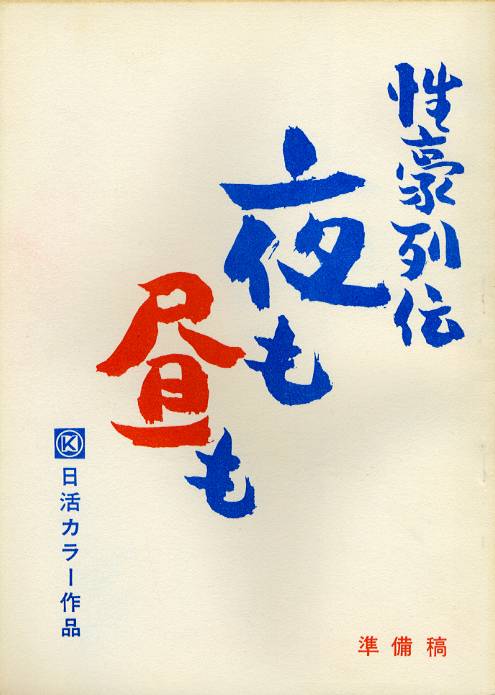 性豪列伝
夜も
昼も
K日活カラー作品
準備稿